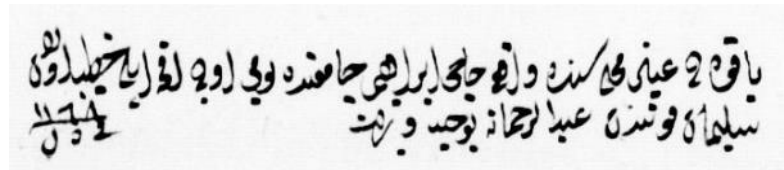 یاقوه ده محله سنده واقع حاجی ابراهیم جامعنده یومی اقچه ایله خطیب اولان
سلیمان فوتندن عبدالرحمان توجیه و برات